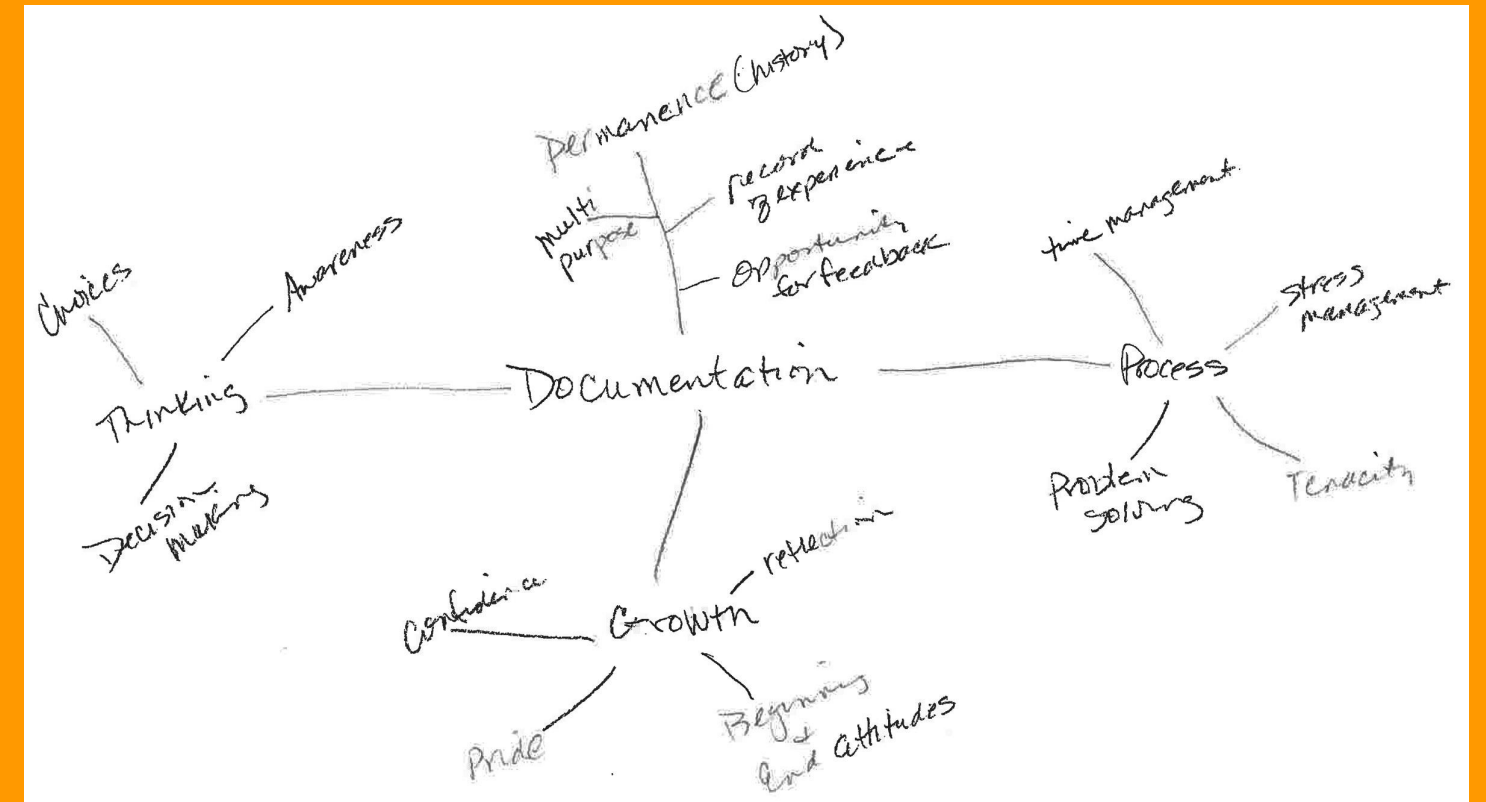 Permanence (history)
multi
purpose
record
of experience
opportunity
for feedback
Choices
Awareness
Thinking
Decision
Making
Documentation
time management
stress
management
Process
Problem
solving
Tenacity
Growth
confidence
reflection
Pride
Beginning
+
End attitudes